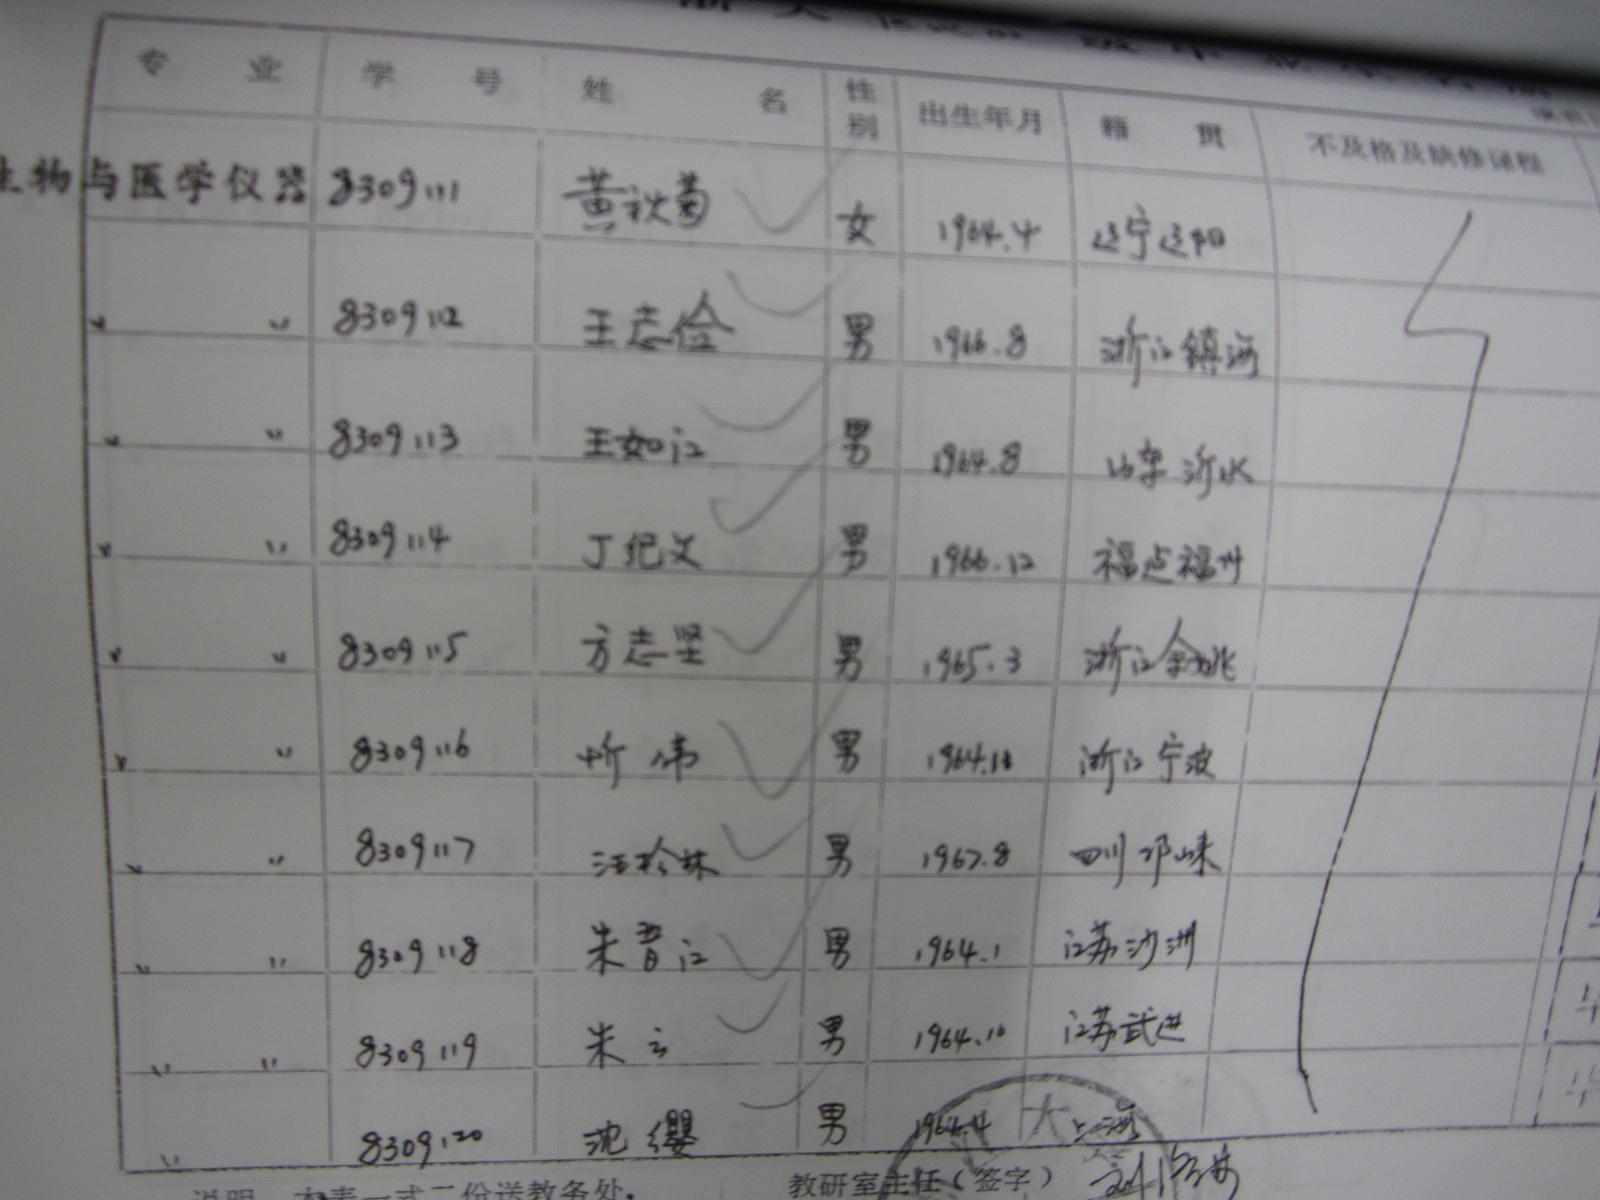 专 业 学 号 姓 名 性别 出生年月 籍 贯 不及格及缺修课程
生物与医学仪器 8309111 黄秋菊 女 1964.4 辽宁辽阳
〃 〃 8309112 王志俭 男 1966.8 浙江镇海
〃 〃 8309113 王如江 男 1964.8 山东沂水
〃 〃 8309114 丁纪文 男 1966.12 福建福州
〃 〃 8309115 方志坚 男 1965.3 浙江余姚
〃 〃 8309116 忻伟 男 浙江宁波
〃 〃 8309117 男 1967.8 四川邛崃
〃 〃 8309118 朱晋江 男 1964.1 江苏沙洲
〃 〃 8309119 朱云 男 1964.10 江苏武进
〃 8309120 沈缨 男 1964.4 上海
说明 本表一式二份送教务处.
教研室主任(签字)